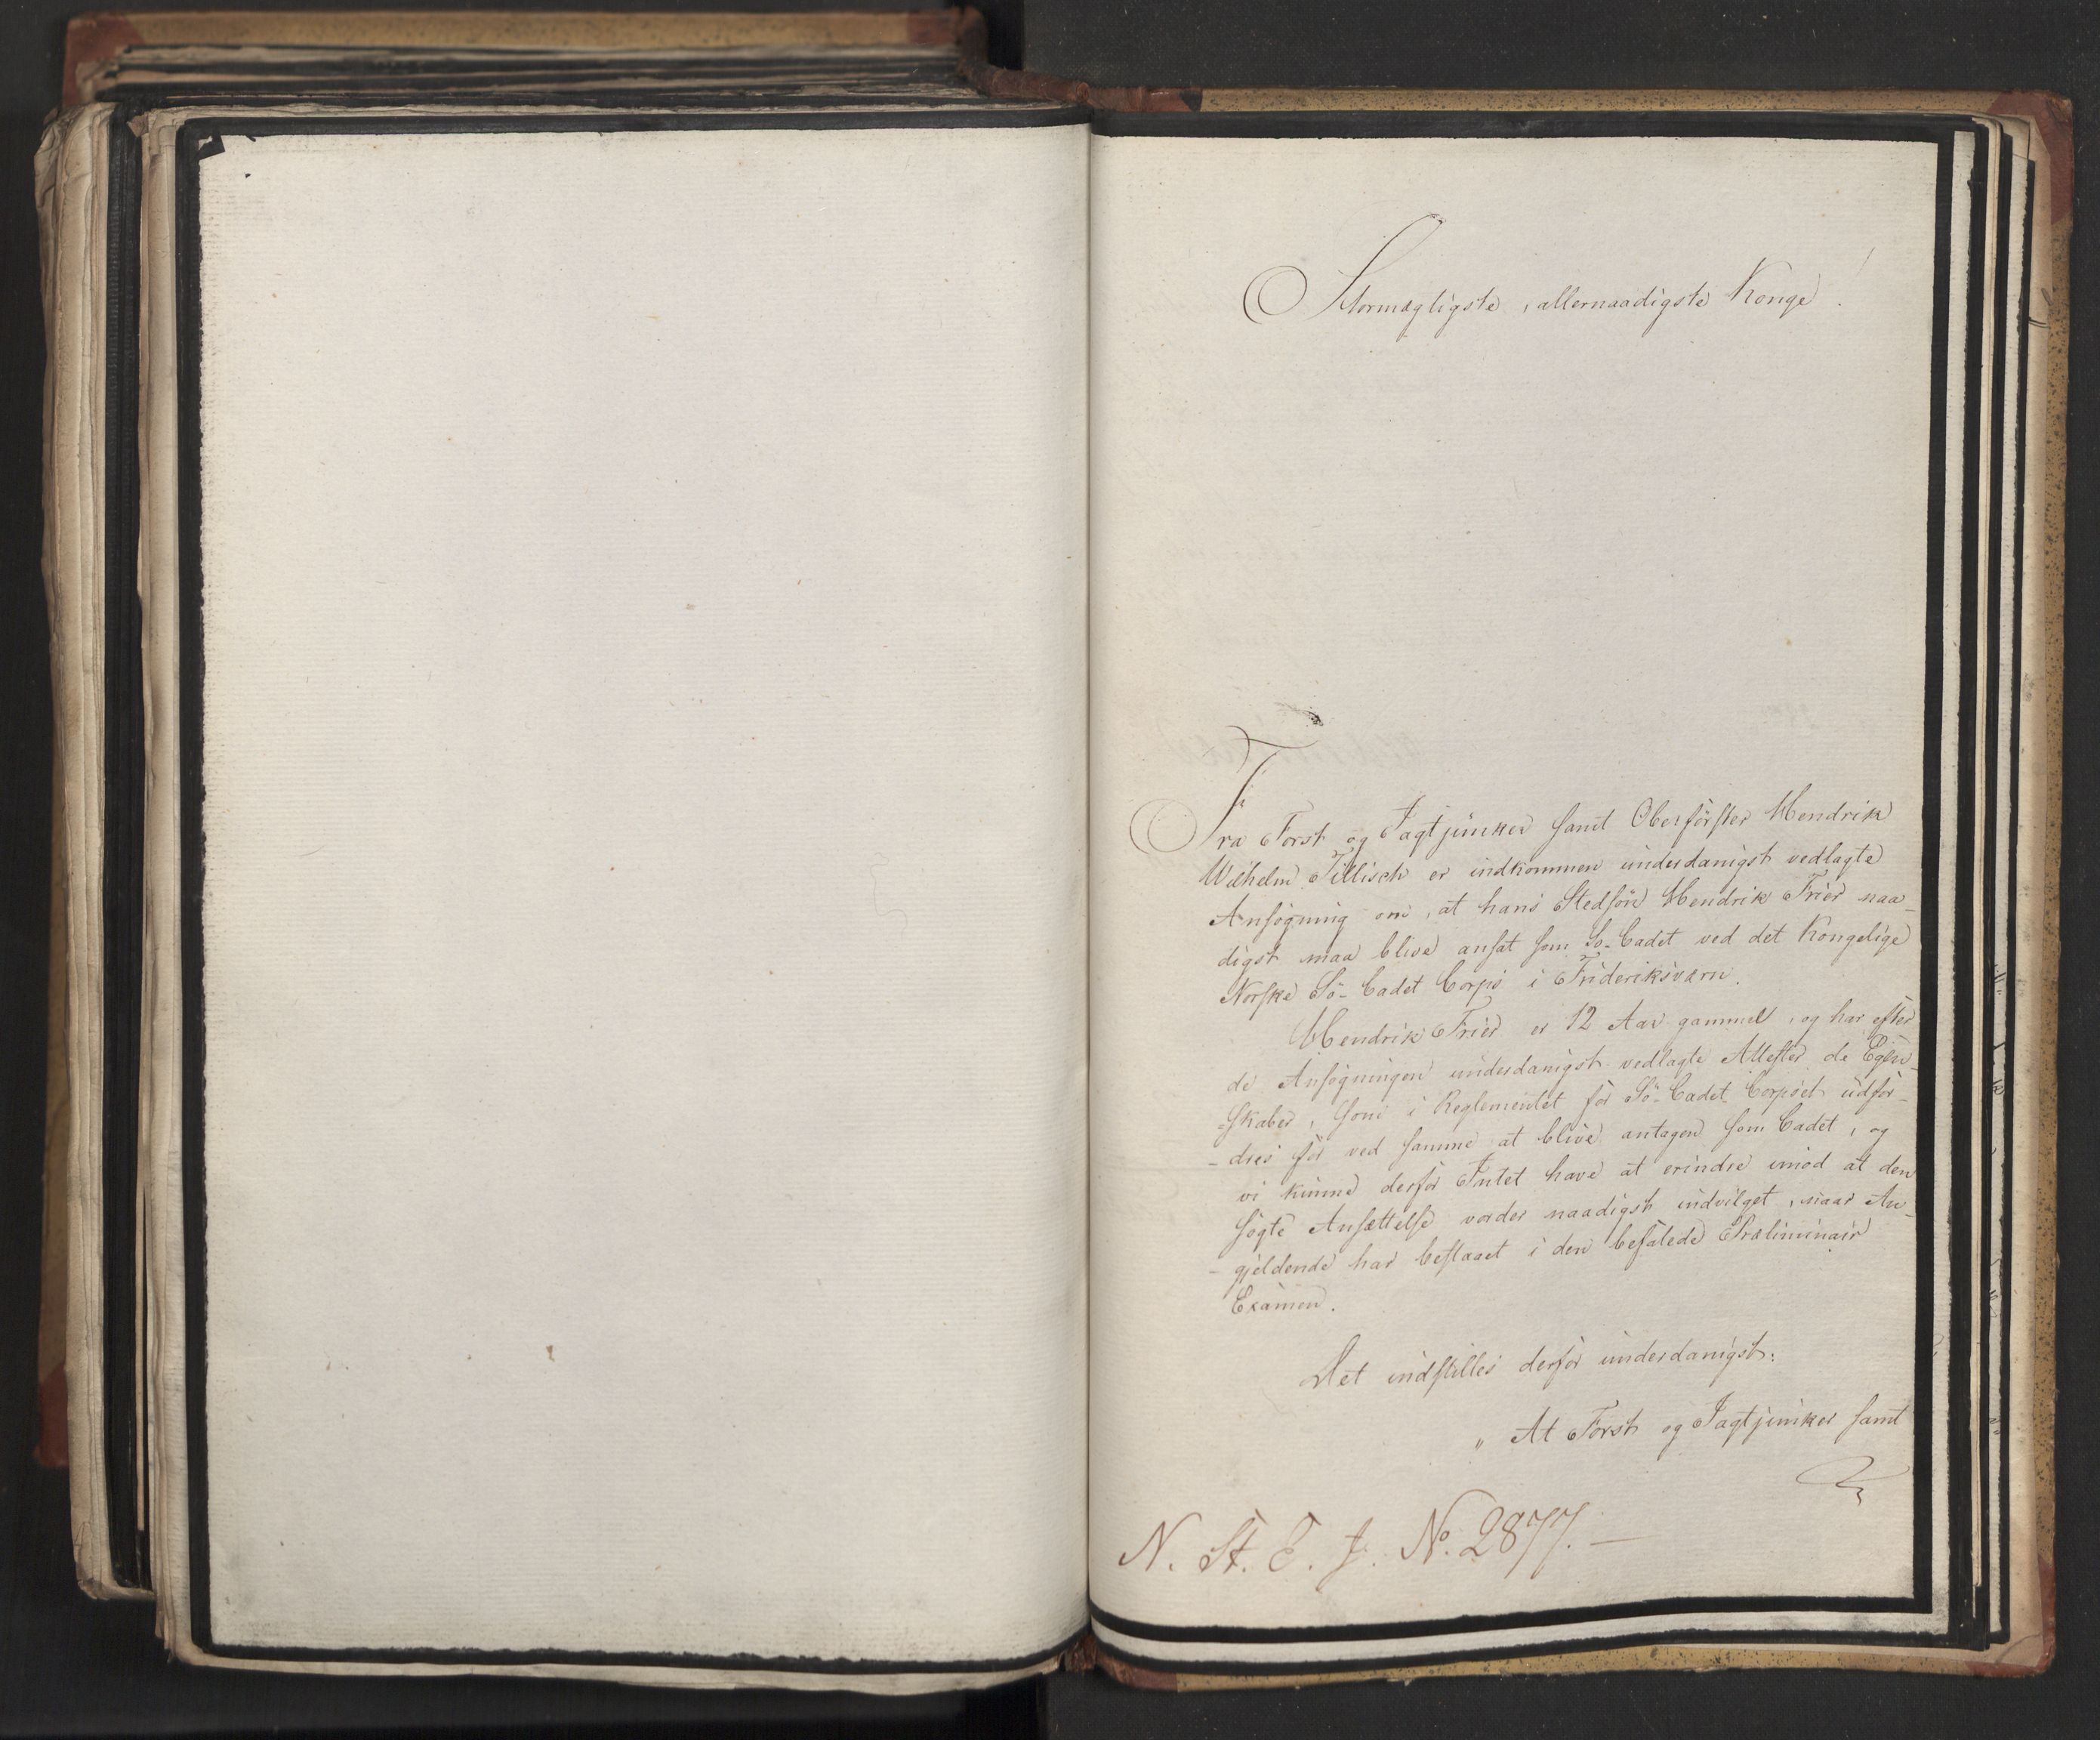 Stormægtigste, allernaadigste Konge!
Fra Forst og Jagtjunker samt Oberförster Hendrik
Wilhelm Tillisch er indkommen underdanigst vedlagte
Ansögning om, at hans Stedsön Hendrik Frier naa-
digst maa blive ansat som Sö-Cadet ved det Kongelige
Norske Sö-Cadet Corps i Frideriksværn.
Hendrik Frier er 12 Aar gammel, og har efter
de Ansögningen underdanigst vedlagte Attester de Egen-
-skaber, som i Reglementet for Sö-Cadet-Corpset udfor-
-dres for ved samme at blive antagen som Cadet, og
vi kunne derfor Intet have at erindre imod at den
sögte Ansættelse vorder naadigst indvilget, naar An-
-gjeldende har bestaaet i den befalede Præliminair
Examen.
Det indstilles derfor underdanigst:
" At Forst og Jagtjunker samt
N. St. E. J. No. 2877. —